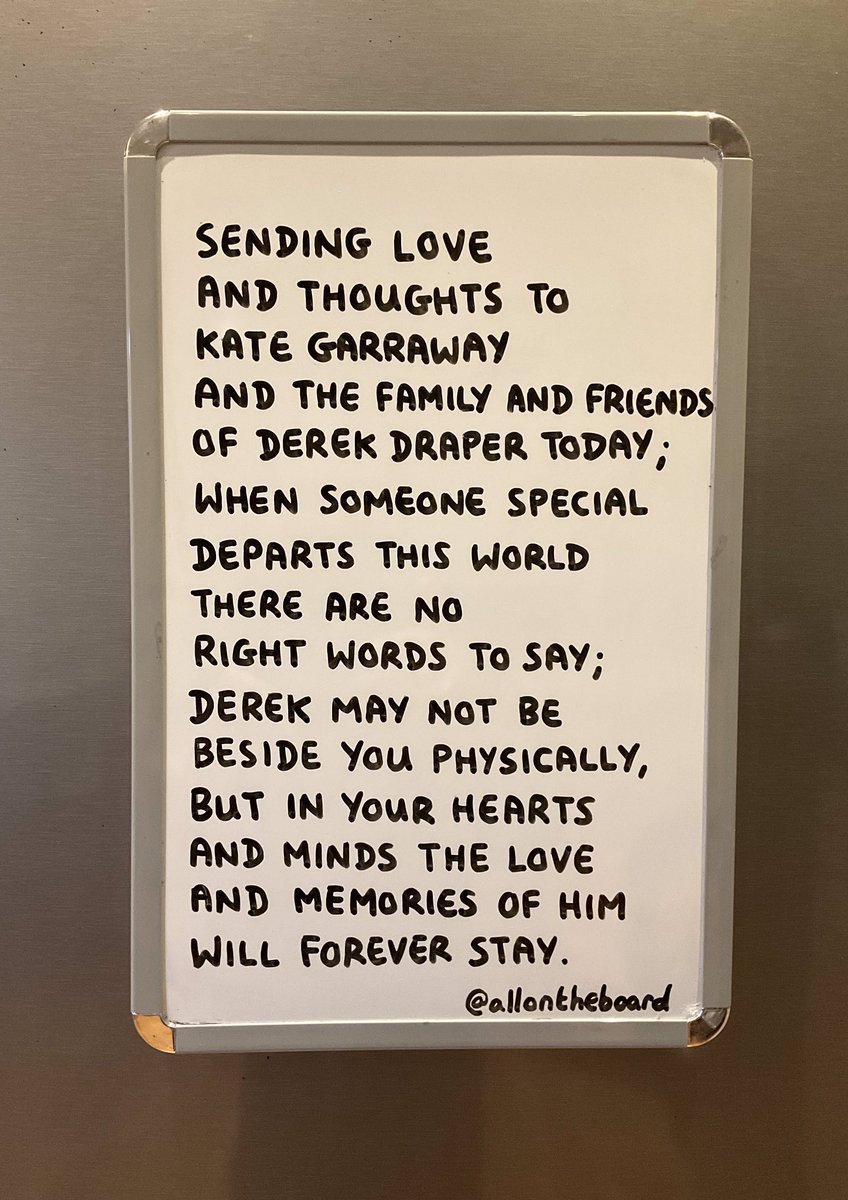 SENDING LOVE
AND THOUGHTS TO
KATE GARRAWAY
AND THE FAMILY AND FRIENDS
OF DEREK DRAPER TODAY;
WHEN SOMEONE SPECIAL
DEPARTS THIS WORLD
THERE ARE NO
RIGHT WORDS TO SAY;
DEREK MAY NOT BE
BESIDE YOU PHYSICALLY,
BUT IN YOUR HEARTS
AND MINDS THE LOVE
AND MEMORIES OF HIM
WILL FOREVER STAY.
@allontheboard